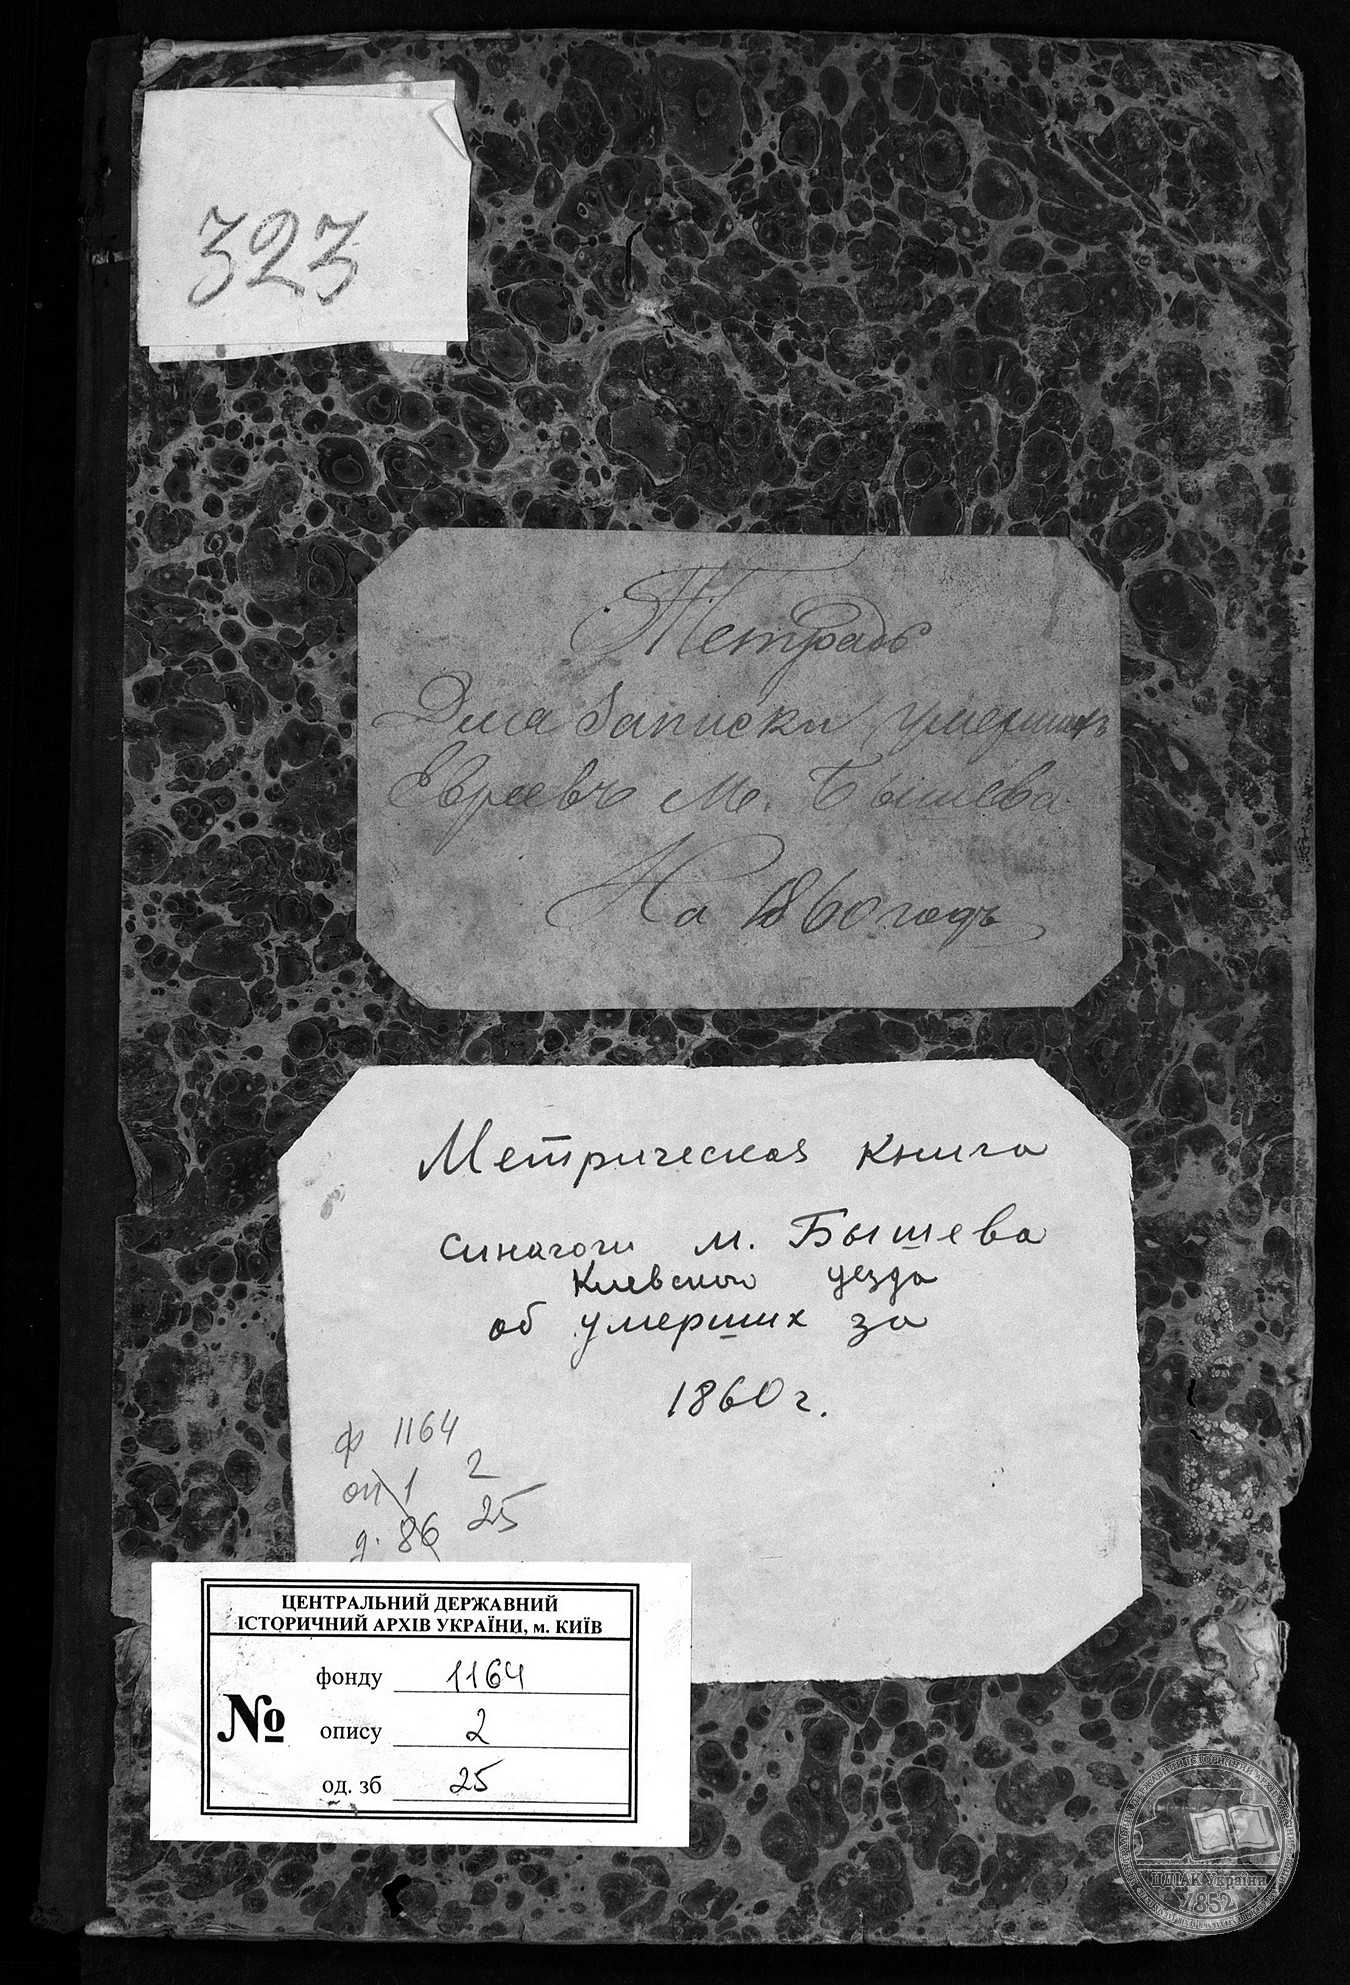 323
Тетрадь
Для Записки умершихъ
Евреевъ м. Бышева
На 1860 годъ
Метрическая книга
синагоги м. Бышева
Киевского уезда
об умерших за
1860 г.
ф 1164
оп 1 2
д. 86 25
ЦЕНТРАЛЬНИЙ ДЕРЖАВНИЙ
ІСТОРИЧНИЙ АРХІВ УКРАЇНИ, м. КИЇВ
фонду 1164
№ опису 2
од. зб 25
ЦДІАК України
1852